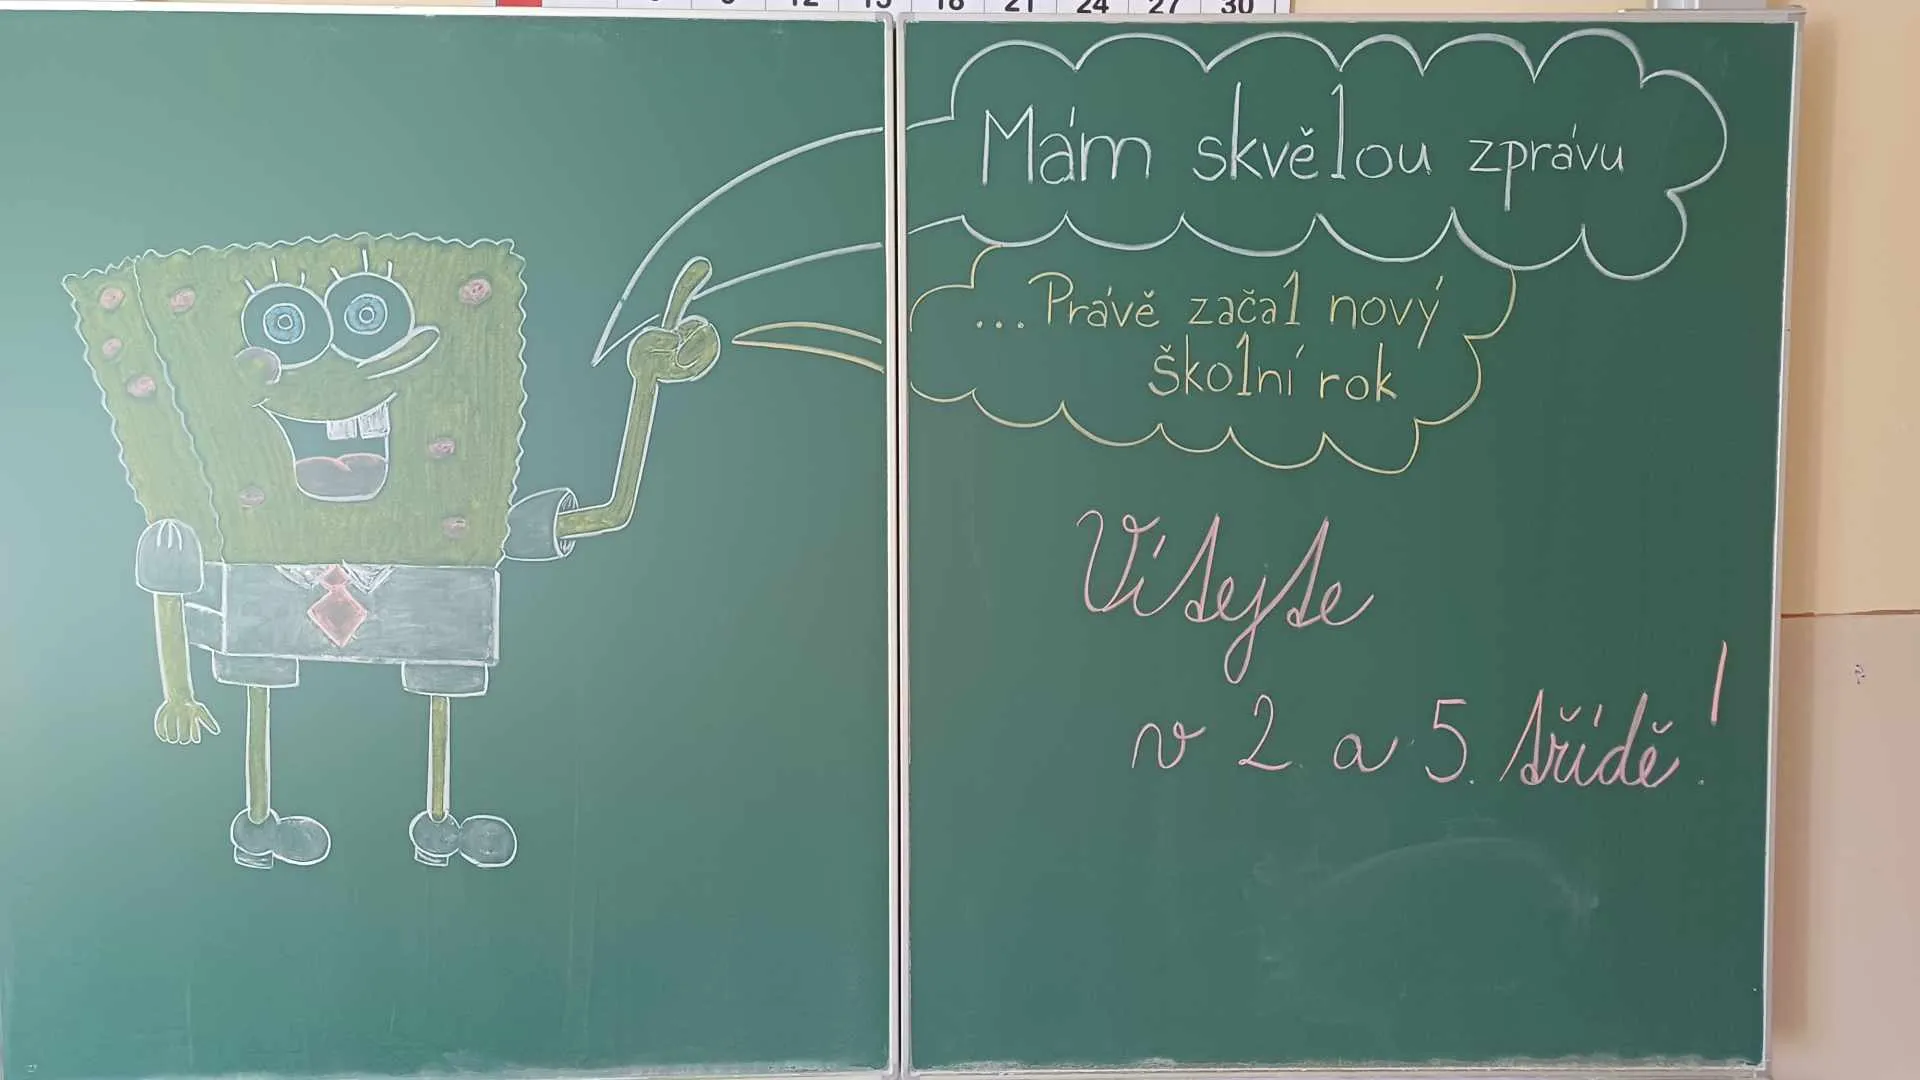 12 15 18 21 24 27 30
Mám skvělou zprávu
...Právě začal nový
školní rok
Vítejte
v 2. a 5. třídě!